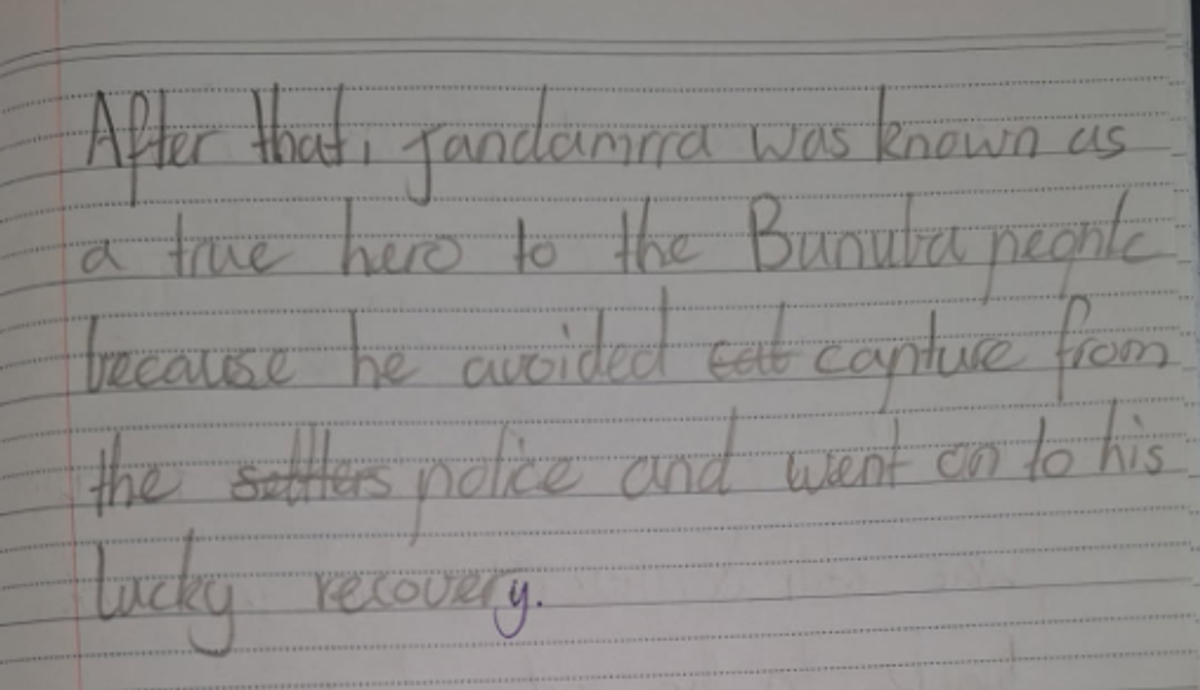 After that, Jandamrra was known as
a true hero to the Bunuba people
because he avoided capture from
the settlers police and went on to his
lucky recovery.